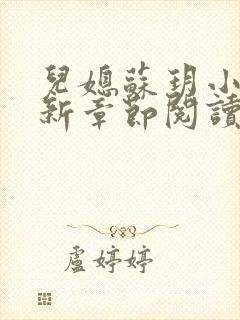 兒媳蘇玥小
新章節閱讀
盧婷婷